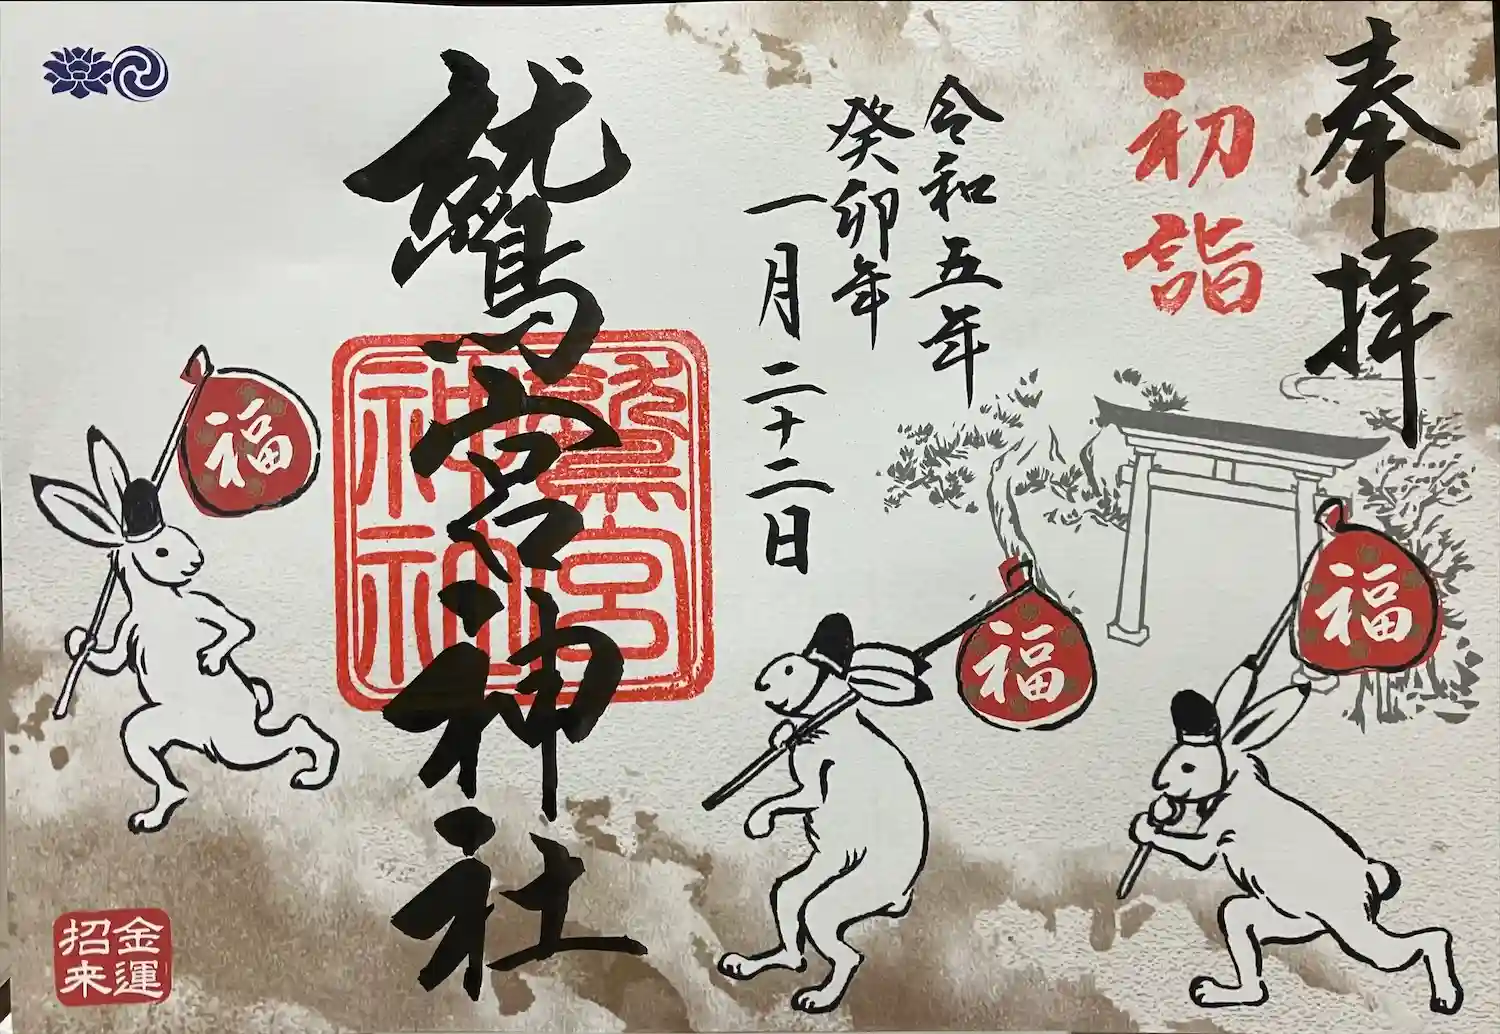 奉拝
初詣
令和五年
癸卯年
一月二十二日
鷲宮神社
鷲宮
神社
福
福
福
金運
招来